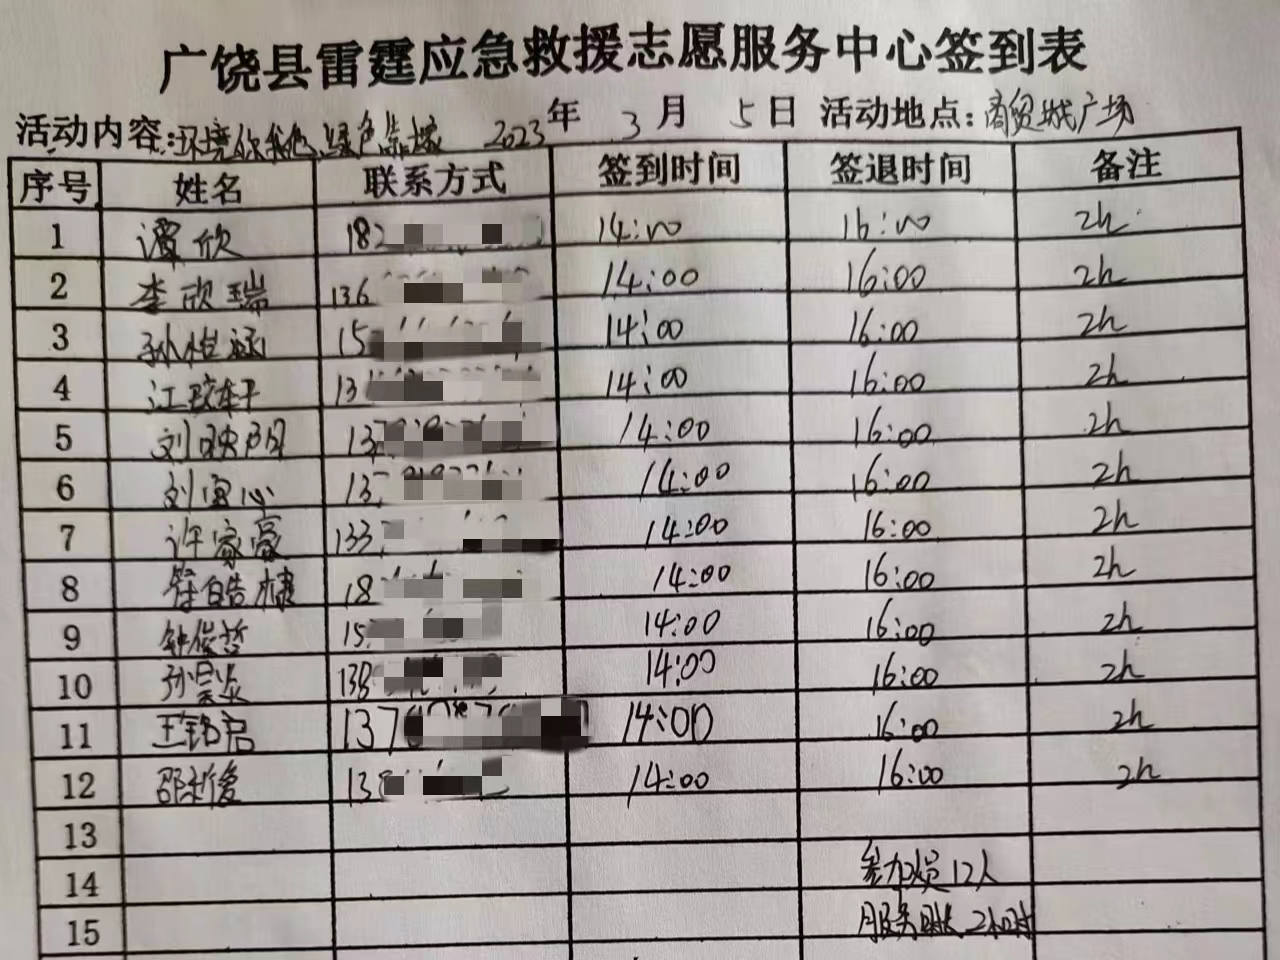 广饶县雷霆应急救援志愿服务中心签到表
活动内容:环境你我他 绿色 2023年 3月 5日 活动地点:商贸城广场
序号 姓名 联系方式 签到时间 签退时间 备注
1 谭欣 182 14:00 16:00 2h
2 李欣瑞 136 14:00 16:00 2h
3 孙恺涵 15 14:00 16:00 2h
4 江 13 14:00 16:00 2h
5 刘映 13 14:00 16:00 2h
6 刘宜心 13 14:00 16:00 2h
7 许家豪 133 14:00 16:00 2h
8 18 14:00 16:00 2h
9 钟俊哲 15 14:00 16:00 2h
10 孙昊 138 14:00 16:00 2h
11 王铭启 137 14:00 16:00 2h
12 邵新俊 13 14:00 16:00 2h
13
14 参加人员12人
15 服务时长 2小时